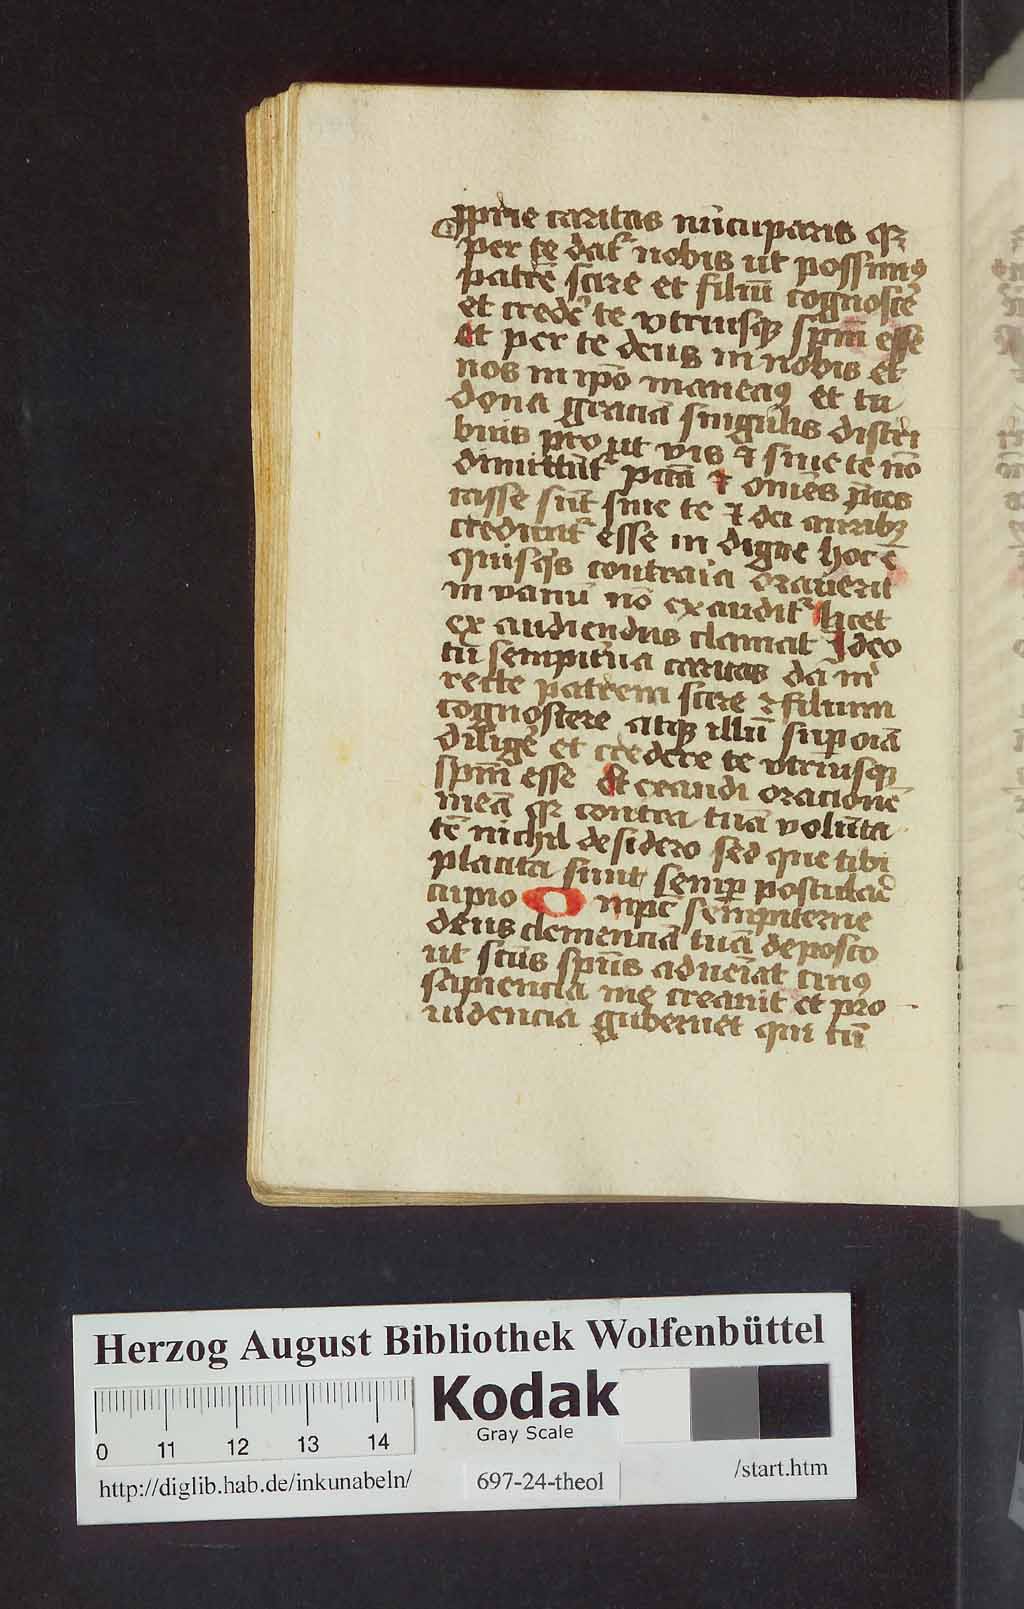 ꝓprie caritas nūcuparis qꝛ
per te datˢ nobis ut possimꝰ
patrē scire et filiū cognoscẽ
et credẽ te vtriusqꝫ spm̄ esse
et per te deus in nobis et
nos in ip̄o maneamꝰ et tu
dona graciā singulis distri
buis pro ut vis ⁊ sine te nō
dimittūtˢ pctā ⁊ omēs p̄ces
casse sūt sine te ⁊ dei auribꝫ
creduntˢ esse indigne hoc ē
quisq̇s contraria orauerit
in vanū nō exauditˢ licet
ex audiendus clamat Ideo
tu sempit͛na caritas da m
recte patrem scire ⁊ filium
cognoscere atqꝫ illū suꝑ oīa
diligẽ et credere te vtriusqꝫ
spm̄ esse Et exaudi oracionē
meā qꝛ contra tuā volūta
tē nichil desidero sed que tibi
placita sunt semꝑ postulaẽ
cupio O mpc̄ sempiterne
deus clemenciā tuā deposco
ut sc̄us spūs adueiat cuiꝰ
sapiencia me creauit et pro
uidencia gubernet qui cū
Herzog August Bibliothek Wolfenbüttel
0 11 12 13 14
Kodak
Gray Scale
http://diglib.hab.de/inkunabeln/
697-24-theol
/start.htm